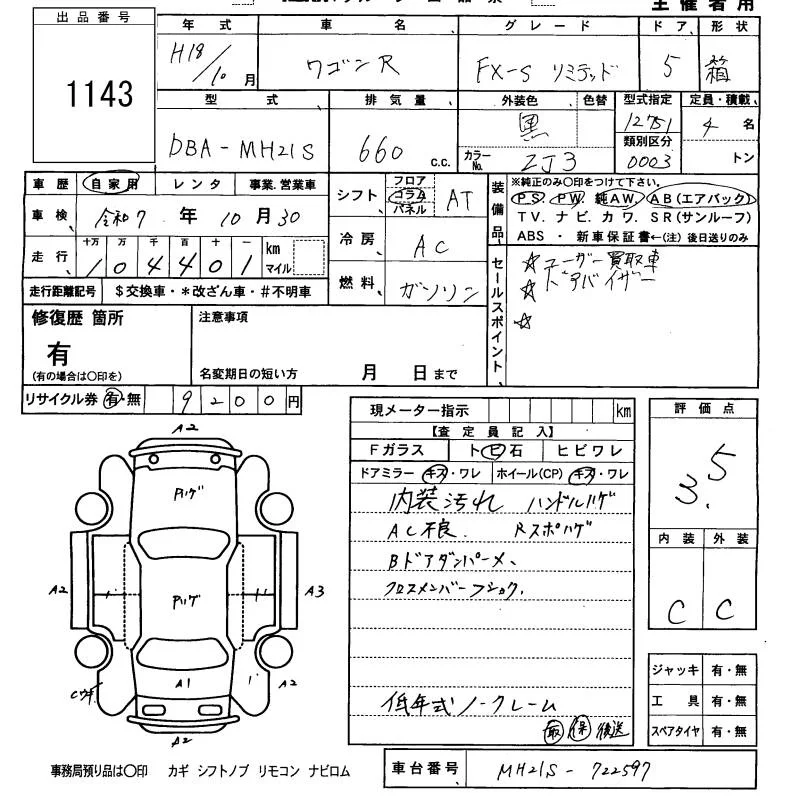 主催者用
出品番号
1143
年式 車名 グレード ドア 形状
H18/10月 ワゴンR FX-S リミテッド 5 箱
型式 排気量 外装色 色替 型式指定 定員・積載
DBA-MH21S 660 c.c. 黒 12751 4名
カラーNo. ZJ3 類別区分 0003 トン
車歴 自家用 レンタ 事業.営業車
車検 令和7年10月30
走行 十万 万 千 百 十 一 km マイル
104401
走行距離記号 $交換車・*改ざん車・#不明車
シフト フロア コラム パネル AT
冷房 AC
燃料 ガソリン
装備品
※純正のみ〇印をつけて下さい。
PS. PW. 純AW. AB(エアバック)
TV. ナビ. カワ. SR(サンルーフ)
ABS ・ 新車保証書←(注)後日送りのみ
セールスポイント
☆ユーザー買取車
☆ドアバイザー
☆
修復歴 箇所
有
(有の場合は〇印を)
注意事項
名変期日の短い方 月 日まで
リサイクル券 有・無 9200円
現メーター指示 km
【査定員記入】
Fガラス トビ石 ヒビワレ
ドアミラー キズ・ワレ ホイール(CP) キズ・ワレ
内装汚れ ハンドルハゲ
AC不良. Rスポハゲ
Bドアダンパーメ、
クロスメンバーフショク.
低年式ノークレーム
取 保 後送
評価点
3.5
内装 外装
C C
ジャッキ 有・無
工具 有・無
スペアタイヤ 有・無
A2
Pハゲ
A2
Pハゲ
A3
A1
Cウキ
A2
A2
事務局預り品は〇印 カギ シフトノブ リモコン ナビロム
車台番号 MH21S-722597